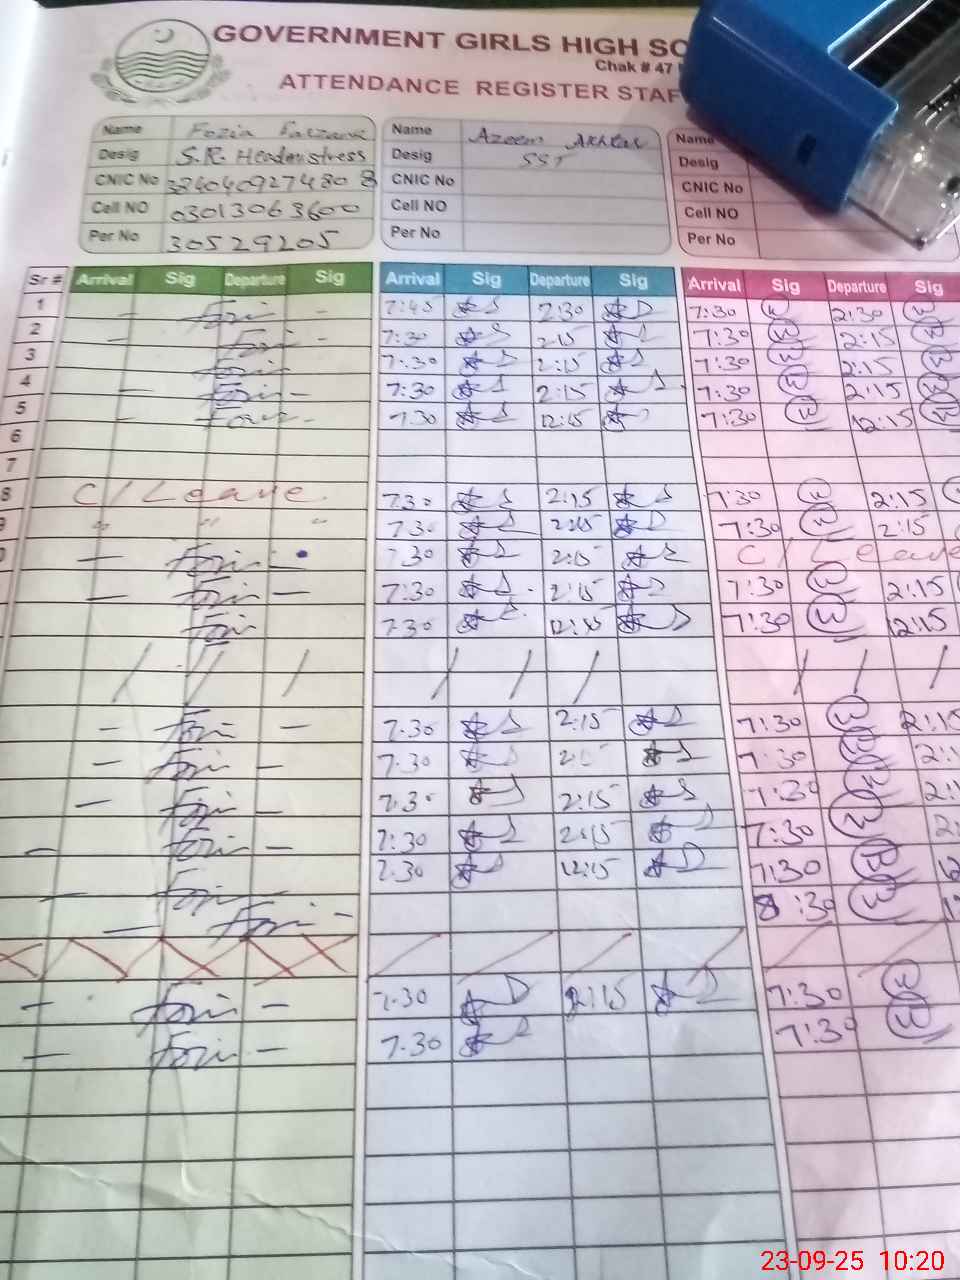 GOVERNMENT GIRLS HIGH SC
Chak # 47
ATTENDANCE REGISTER STAF
Name Fozia Farzana Name Azeem Akhtar Name
Desig S.R. Headmistress Desig SST Desig
CNIC No CNIC No CNIC No
Cell NO 03013063600 Cell NO Cell NO
Per No 30529205 Per No Per No
Sr # Arrival Sig Departure Sig Arrival Sig Departure Sig Arrival Sig Departure Sig
1 - - 7:45 2:30 7:30 2:30
2 - - 7:30 2:15 7:30 2:15
3 7:30 2:15 7:30 2:15
4 - - 7:30 2:15 7:30 2:15
5 - - 7:30 12:15 7:30 12:15
6
7
8 C/Leave 7:30 2:15 7:30 2:15
9 " " " 7:30 2:15 7:30 2:15
- 7:30 2:15 C/Leave
- - 7:30 2:15 7:30 2:15
7:30 7:30 12:15
/ / / / / / / / /
- - 7:30 2:15 7:30 2:15
- - 7:30 7:30
- 7:30 2:15 7:30
- - 7:30 2:15 7:30
7:30 12:15 7:30
- - 8:30
- -
- - 7:30 2:15 7:30
- - 7:30 7:30
23-09-25 10:20